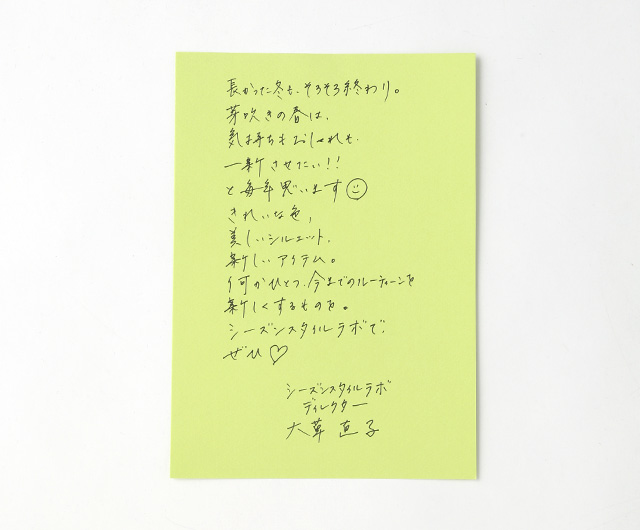 長かった冬も、そろそろ終わり。
芽吹きの春は、
気持ちもおしゃれも、
一新させたい!!
と毎年思います☺
きれいな色、
美しいシルエット、
新しいアイテム。
何かひとつ、今までのルーティーンを
新しくするものを。
シーズンスタイルラボで、
ぜひ♡
シーズンスタイルラボ
ディレクター
大草 直子